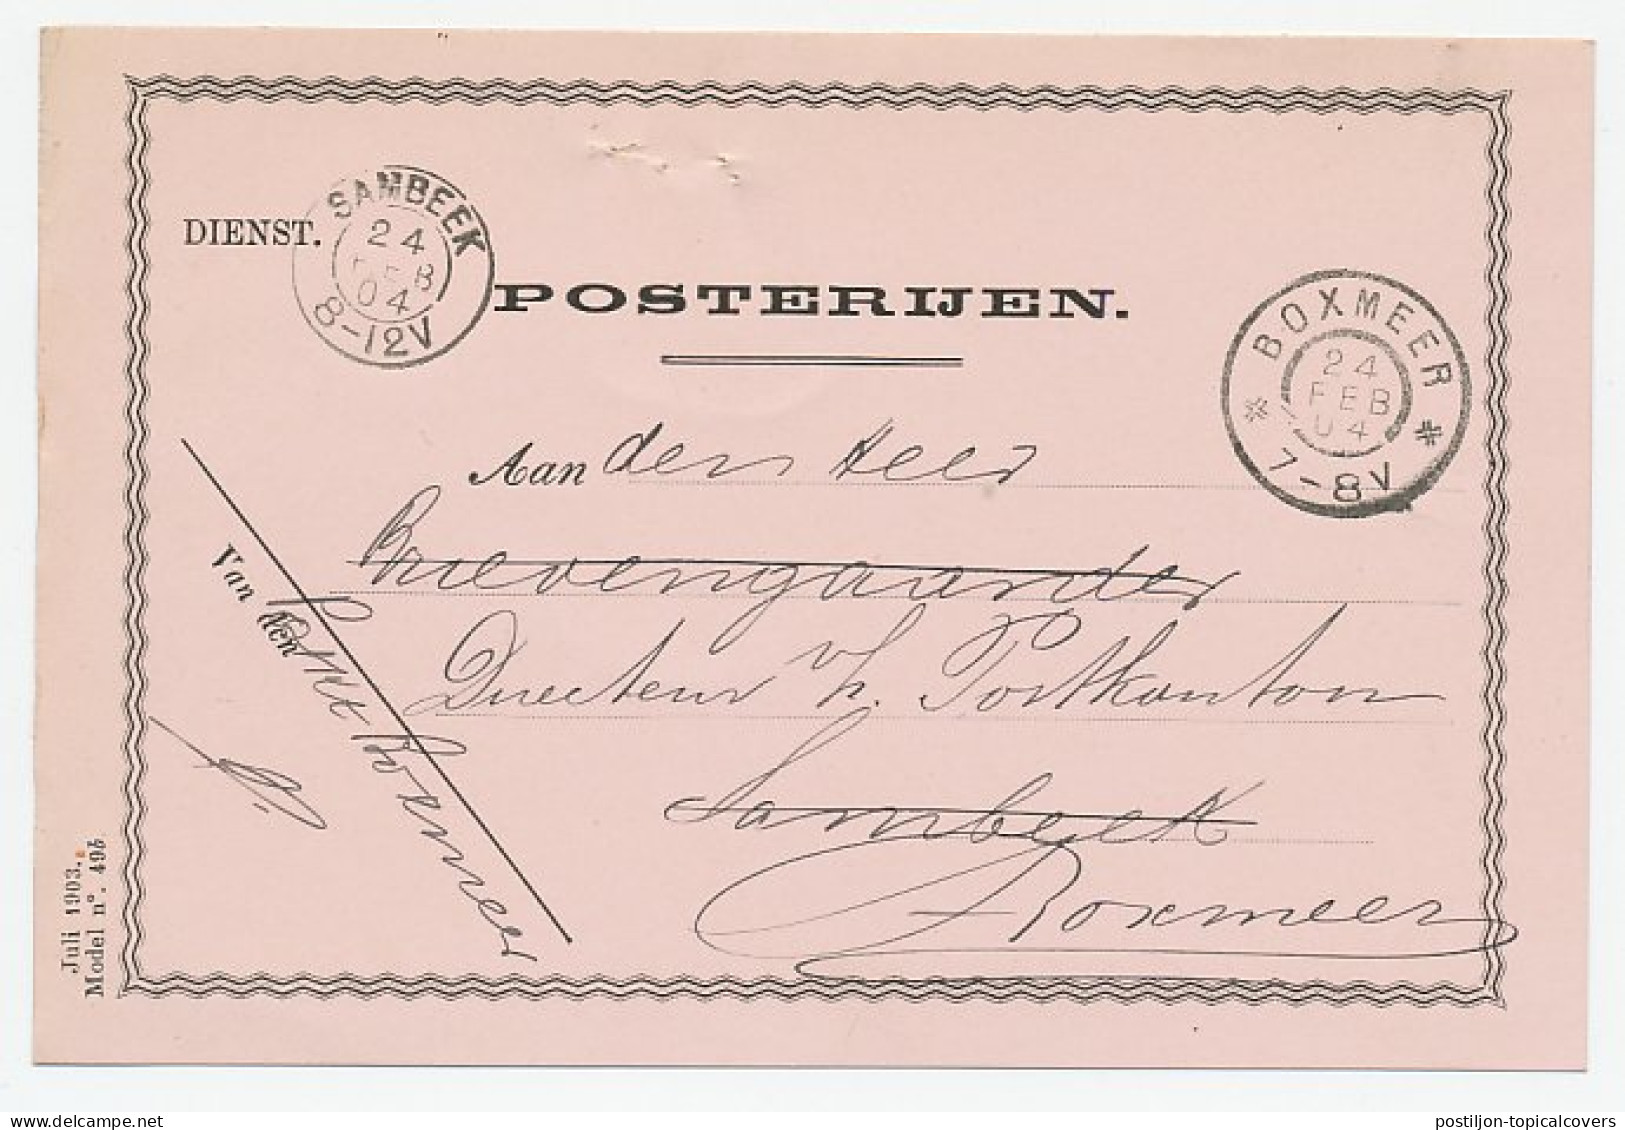 DIENST.
SAMBEEK
24
FEB
04
8-12V
POSTERIJEN.
BOXMEER
24
FEB
04
7-8V
Aan den Heer
Brievengaarder
Directeur v/h. Postkantoor
Sambeek
Boxmeer
Van den
Boxmeer
Juli 1903.
Model n°. 49b
delcampe.net
postiljon-topicalcovers